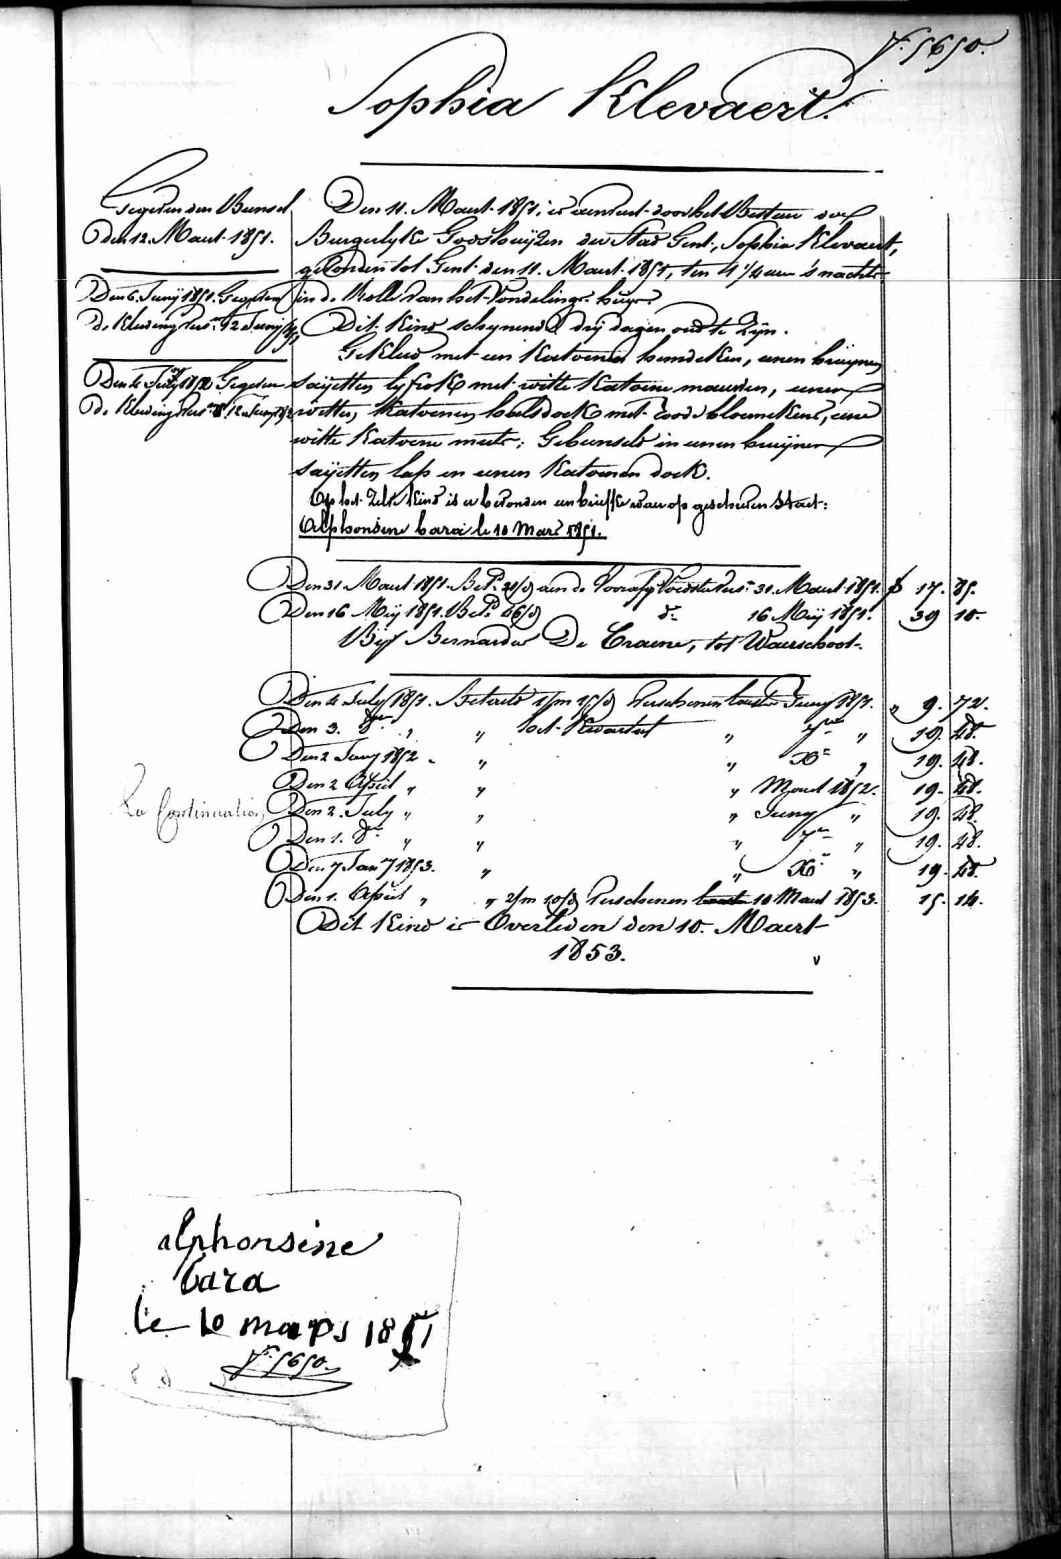 N.º 5650.
Sophia Klevaert.
Gegeven den Bunsel
den 12. Maart 1851.
Den 6. Junij 1851. Gegeven
de Kleeding
Gegeven
de Kleeding
Den 11. Maart 1851, is aenveert door het Bestuer der
Burgerlyke Godshuijzen der Stad Gent, Sophia Klevaert,
gevonden tot Gent den 11. Maart 1851, ten 4 1/4 uren 's nachts
in de Rolle van het Vondelings-huys.
Dit Kind schynende drij dagen oud te zyn.
Gekleed met een Katoenen hemdeken, eenen bruynen
saijetten lyfrok met witte Katoene mauwen, eenen
witten, Katoenen halsdoek met roode bloemekens, eene
witte Katoene muts; Gebunseld in eenen bruijnen
saijetten lap en eenen Katoenen doek.
Op het zelve Kind is er bevonden een briefke waer op geschreven staet:
Alphonsine Cara le 10 Mars 1851.
Den 31 Maart 1851. Bet. 21/d aen de Voedster 31 Maart 1851. f 17. 85.
Den 16 Meij 1851. Bet. 46/d d.º 16 Meij 1851. 39 10.
Bij Bernardus De Craene, tot Waerschoot.
Den 4 July 1851. Betaeld 1/m 15/d Verschenen Juny 1851. " 9. 72.
Den 3. 8ber " " het Kwartael " 7ber " 19. 48.
Den 2 Jany 1852 " " " Xb " 19. 48.
Den 2 April " " " Maart 1852. 19. 48.
La Continuation
Den 2. July " " " Juny " 19. 48.
Den 1. 8ber " " " 7ber " 19. 48.
Den 7 Jany 1853. " " Xb " 19. 48.
Den 1. April " " 2/m 10/d Verschenen 10 Maart 1853. 15. 14.
Dit Kind is Overleden den 10. Maert
1853.
alphonsine
Cara
le 10 mars 1851
N.º 5650.